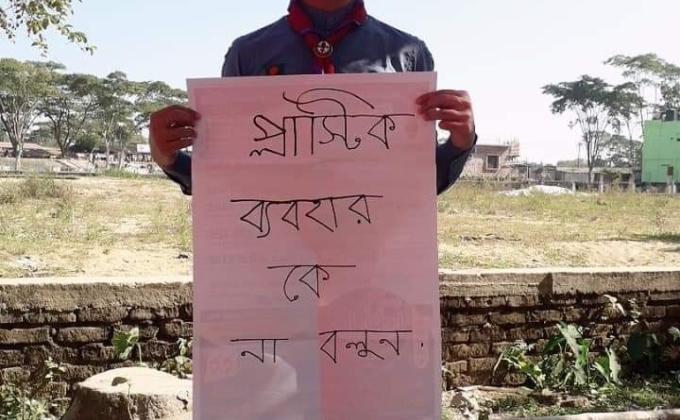 প্লাস্টিক
ব্যবহার
কে
না বলুন.